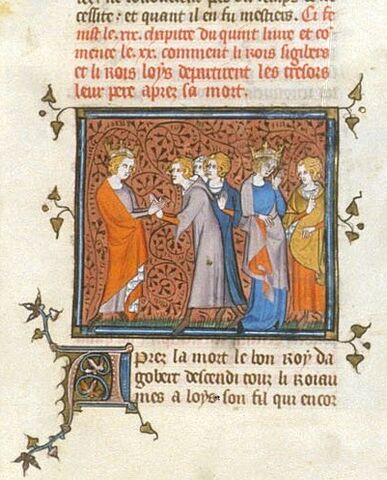 cessite: et quant il en fu mestiers. Ci fe
nist le .xix. chapitre du quint liure et co
mence le .xx. comment li rois sigibers
et li rois loys departirent les tresors
leur pere aprez sa mort.
Aprez la mort le bon Roy da
gobert descendi tout li roiau
mes a loys son fil qui encor